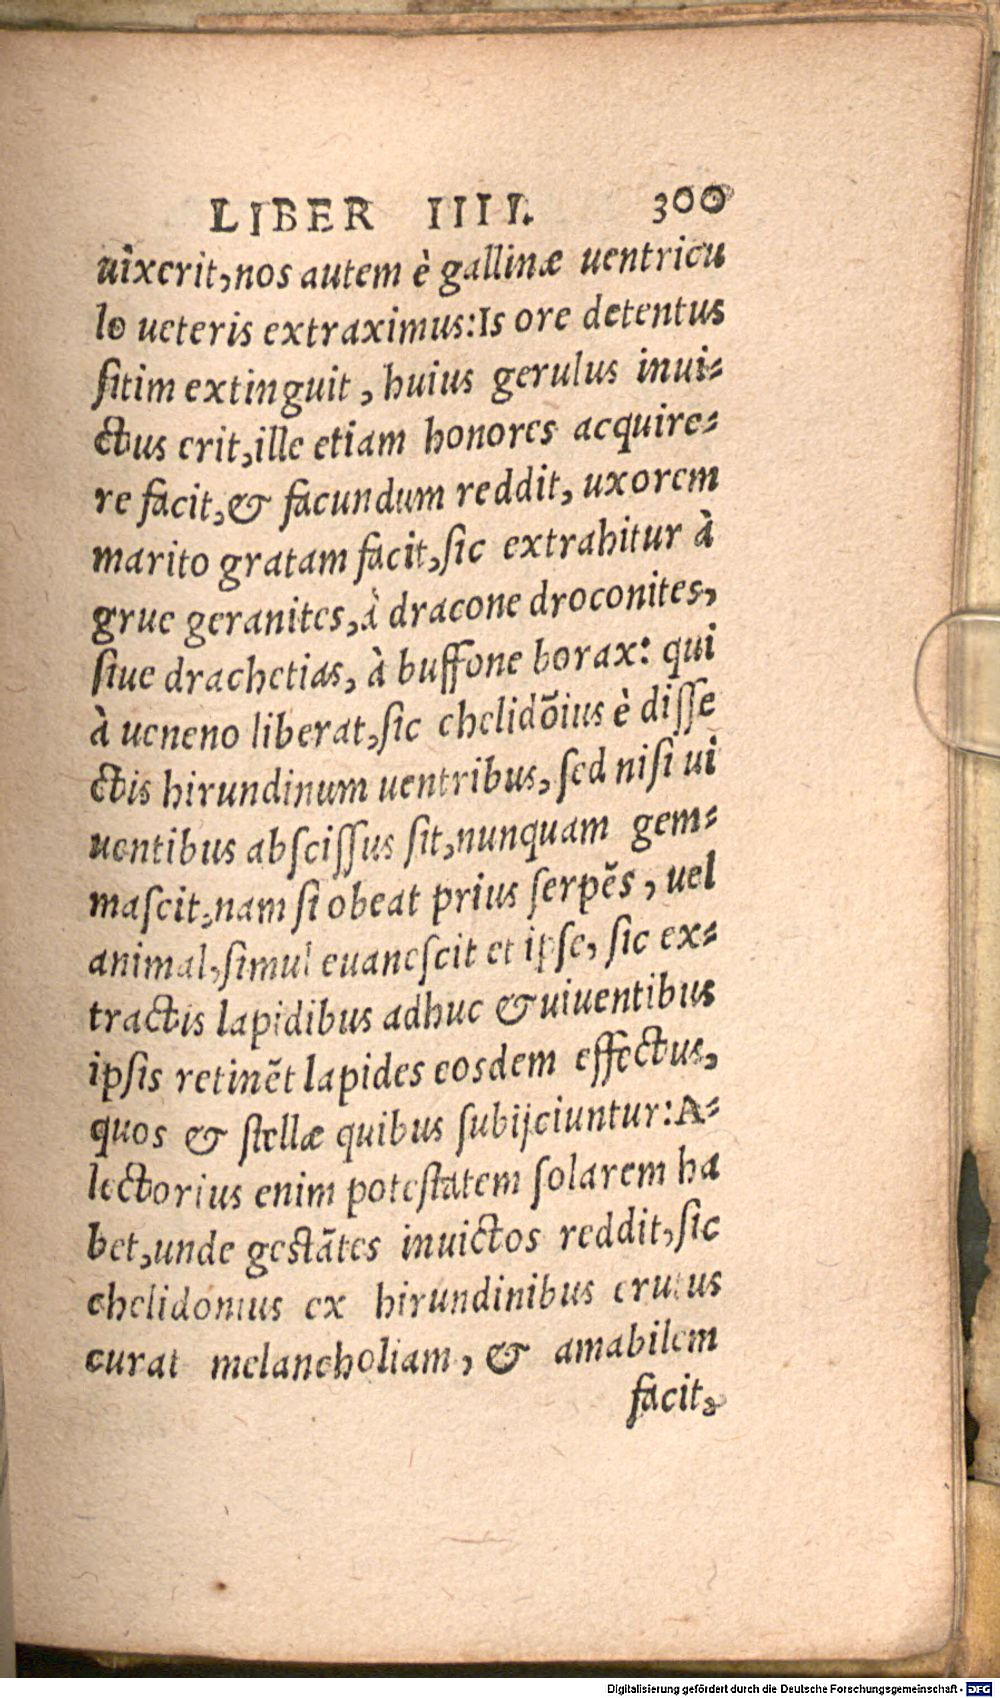 LIBER IIII. 300
uixerit, nos autem è gallinæ uentricu
lo ueteris extraximus: Is ore detentus
sitim extinguit, huius gerulus inui-
ctus erit, ille etiam honores acquire-
re facit, & facundum reddit, uxorem
marito gratam facit, sic extrahitur à
grue geranites, à dracone droconites,
siue drachetias, à buffone borax: qui
à ueneno liberat, sic chelidõius è disse
ctis hirundinum uentribus, sed nisi ui
uentibus abscissus sit, nunquam gem-
mascit, nam si obeat prius serpẽs, uel
animal, simul euanescit et ipse, sic ex-
tractis lapidibus adhuc & uiuentibus
ipsis retinẽt lapides eosdem effectus,
quos & stellæ quibus subijciuntur: A-
lectorius enim potestatem solarem ha
bet, unde gestãtes inuictos reddit, sic
chelidonius ex hirundinibus erutus
curat melancholiam, & amabilem
facit,
Digitalisierung gefördert durch die Deutsche Forschungsgemeinschaft - DFG